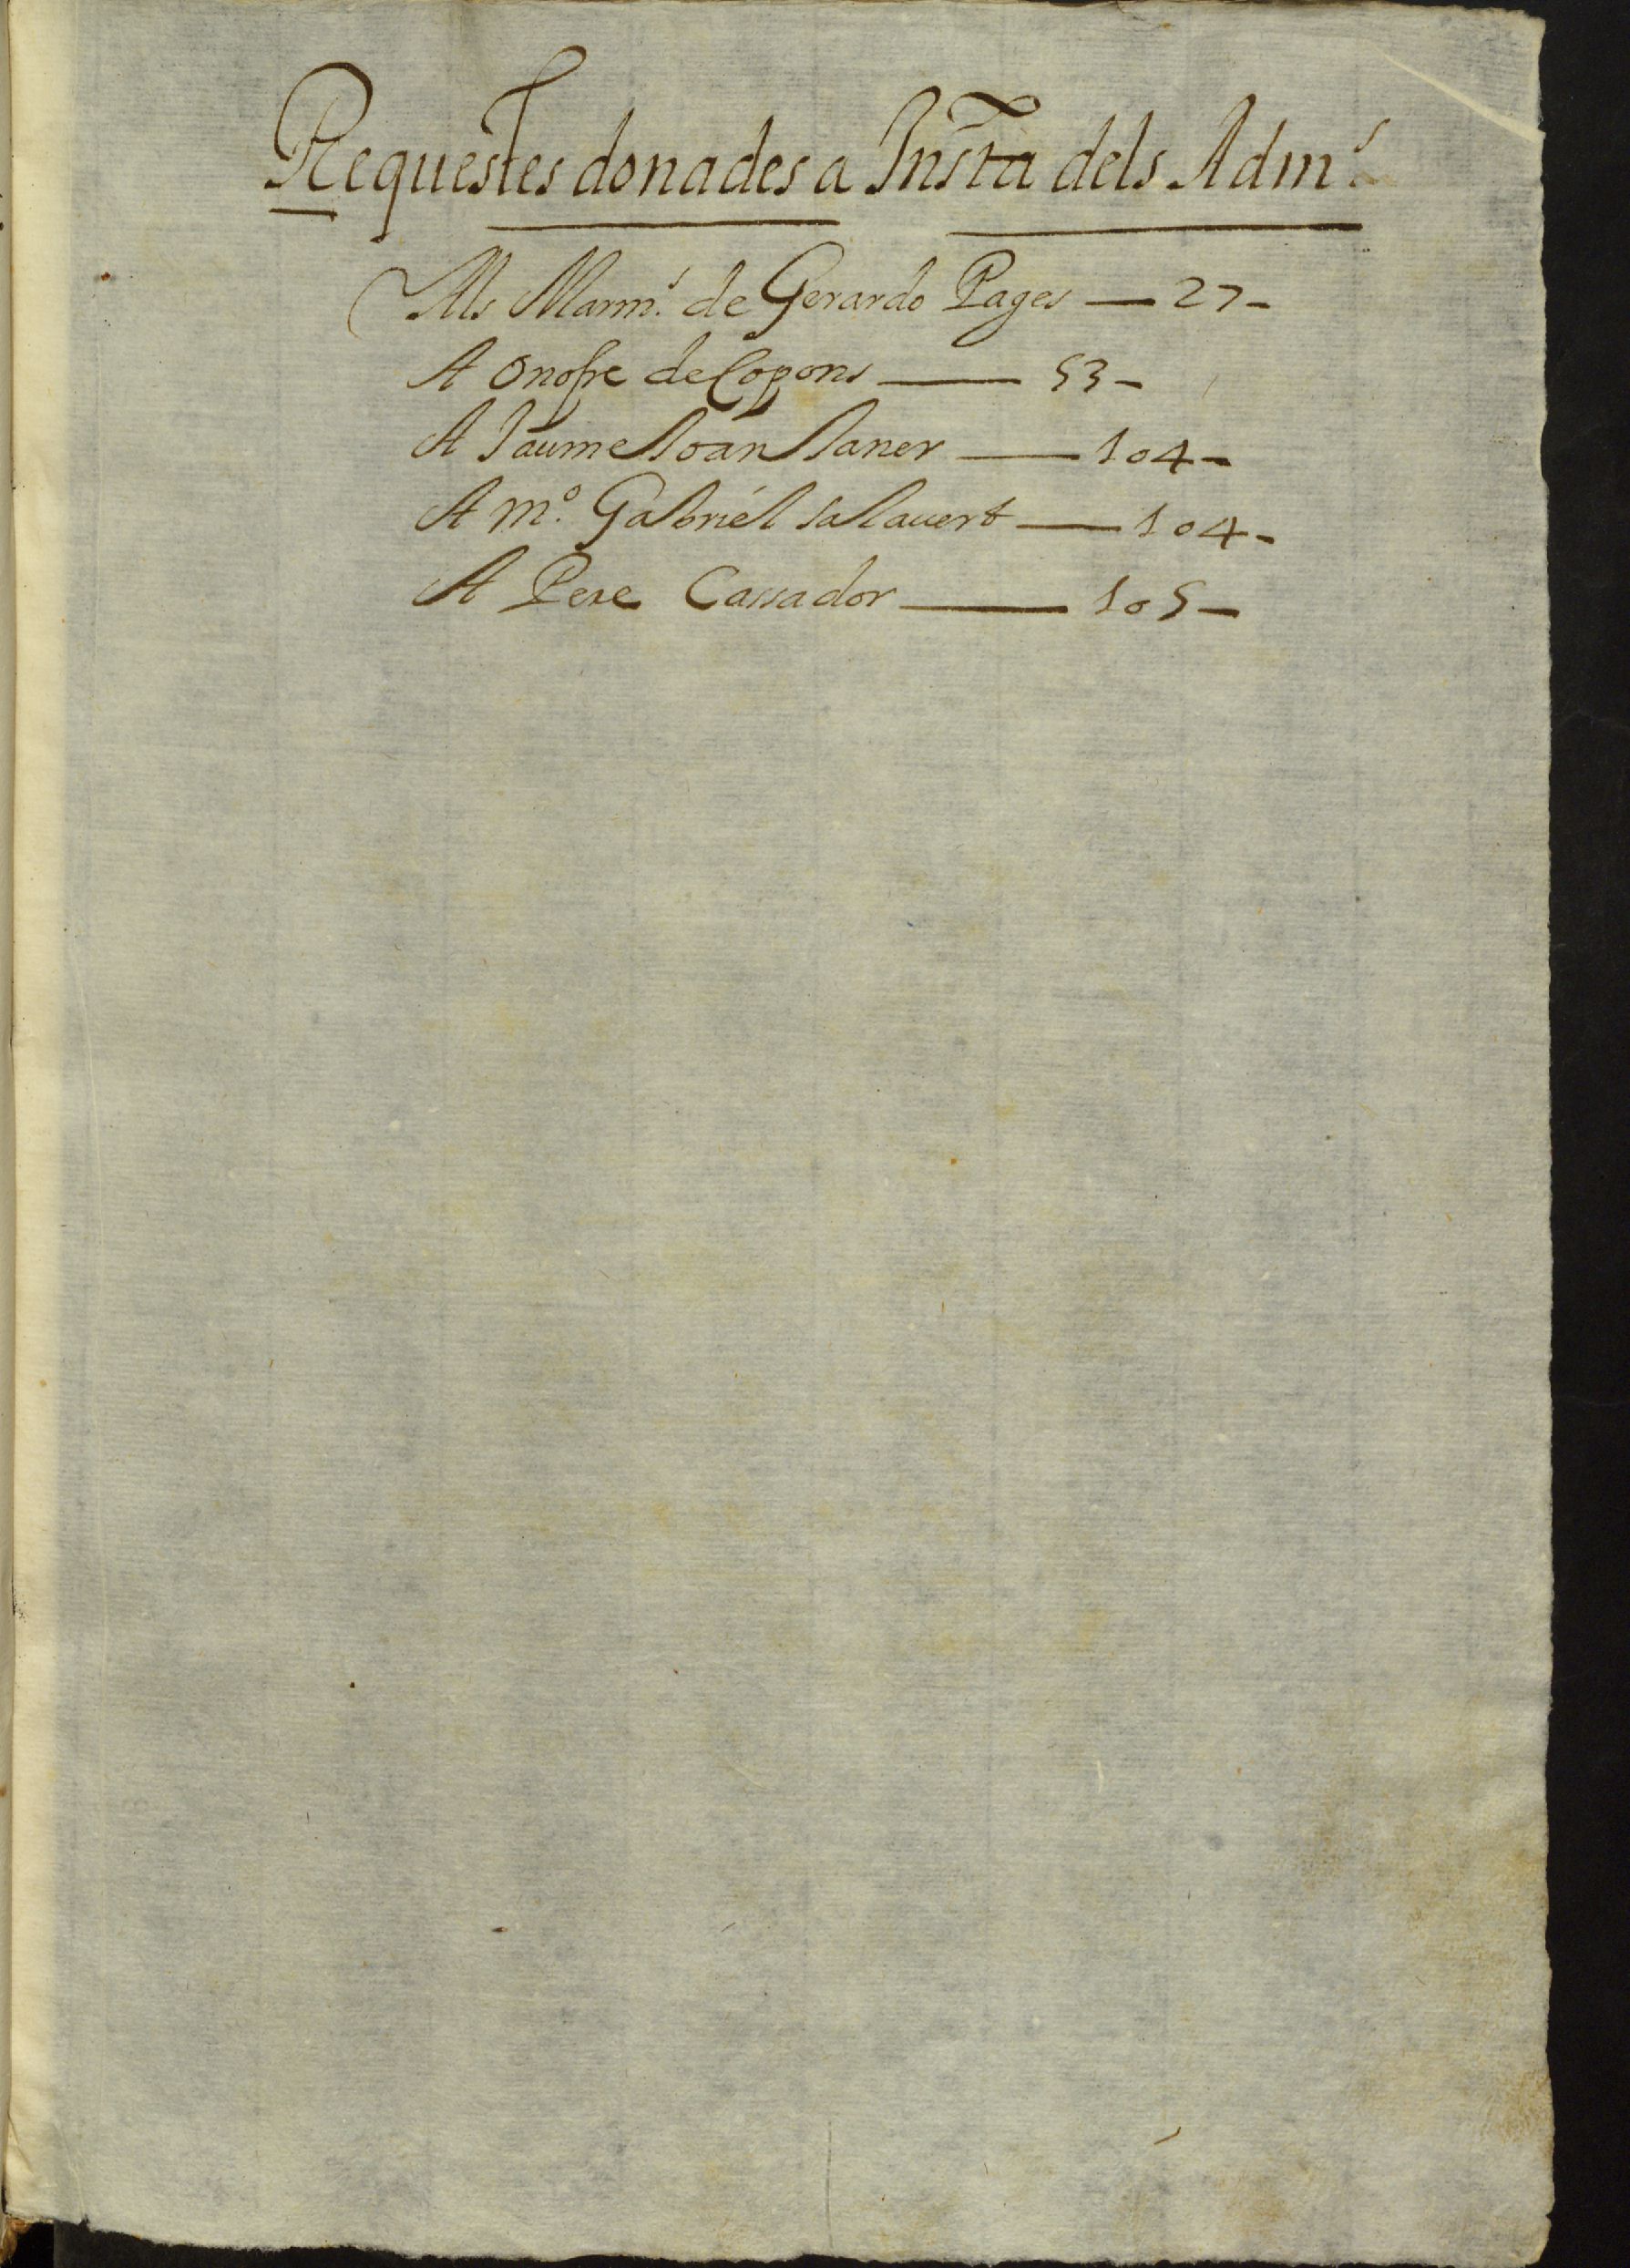 Requestes donades a Insta dels Adm.s
Als Marm.s de Gerardo Pages — 27 -
A Onofre de Copons — 53 -
A Jaume Joan Janer — 104 -
A m.o Gabriel salavert — 104 -
A Pere Cassador — 105 -